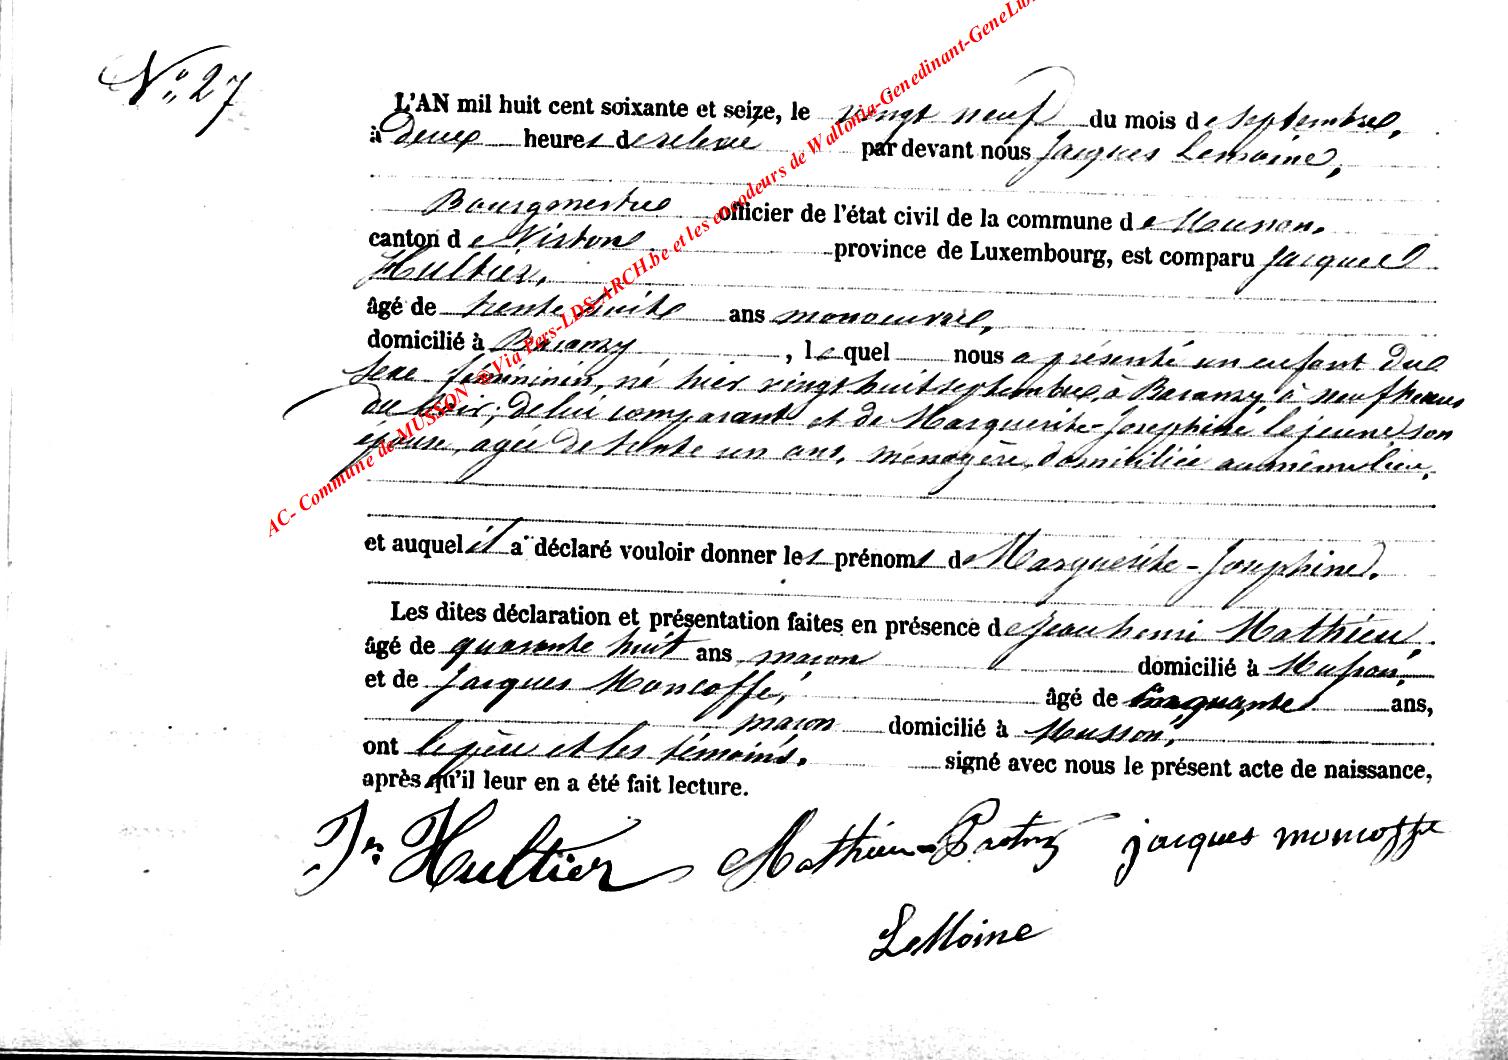 N° 27
L'AN mil huit cent soixante et seize, le vingt neuf du mois de septembre,
à deux heures de relevée par devant nous Jacques Lemoine,
Bourgmestre officier de l'état civil de la commune de Musson.
canton de Virton province de Luxembourg, est comparu Jacques
Hultier,
âgé de trente huit ans manoeuvre,
domicilié à Baranzy, lequel nous a présenté un enfant du
sexe féminin, né hier vingt huit septembre, à Baranzy à neuf heures
du soir, de lui comparant et de Marguerite-Josephine Lejeune son
épouse, agée de trente un ans, ménagère, domiciliée au même lieu.
et auquel il a déclaré vouloir donner les prénoms de Marguerite-Josephine.
Les dites déclaration et présentation faites en présence de Jean henri Mathieu,
âgé de quarante huit ans maçon domicilié à Musson,
et de Jacques Moncoffé, âgé de cinquante ans,
maçon domicilié à Musson,
ont le père et les témoins. signé avec nous le présent acte de naissance,
après qu'il leur en a été fait lecture.
Hultier Mathieu jacques moncoffé
LeMoine
AC- Commune de MUSSON ®Via Pers-LDS-ARCH.be et les encodeurs de Wallonia-Genedinant-GeneLux